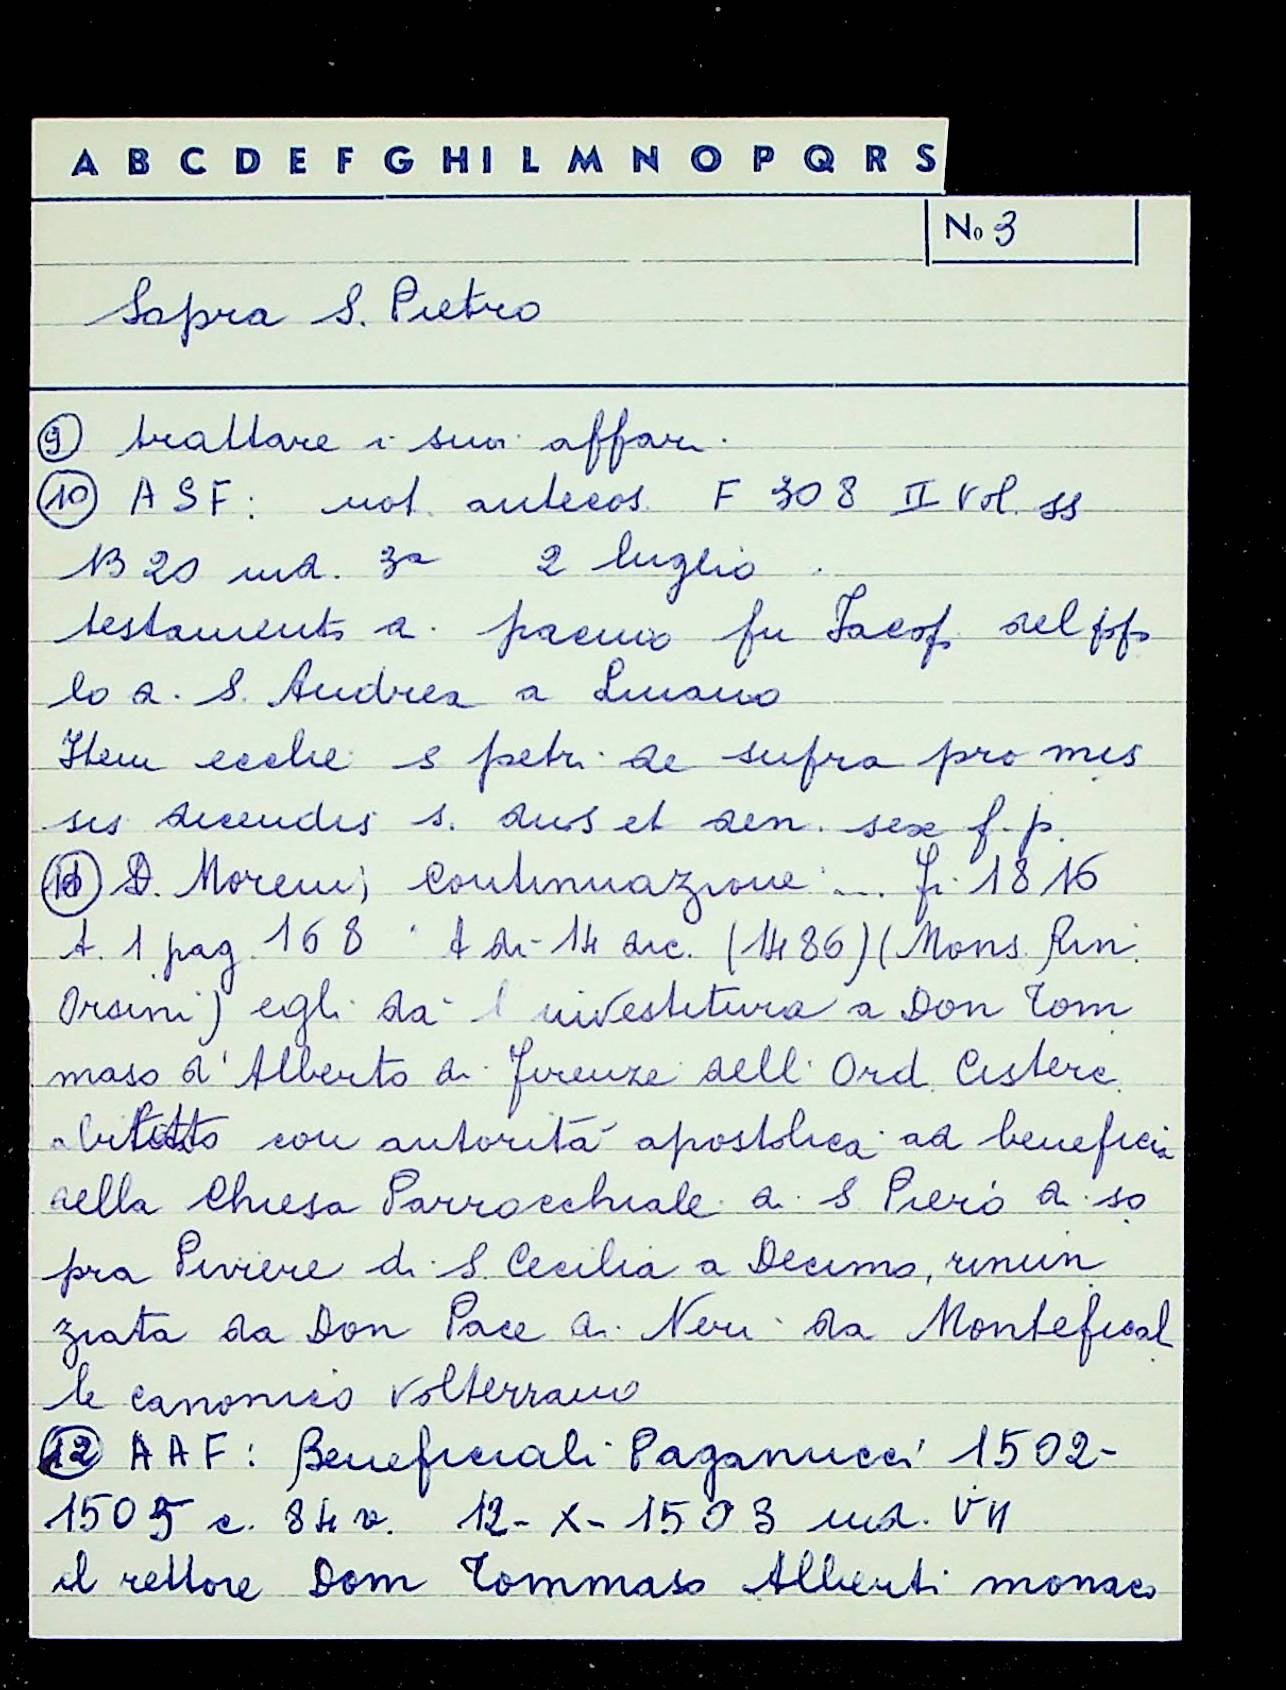 A B C D E F G H I L M N O P Q R S
No 3
Sopra S. Pietro
9 trattare i suoi affari.
10 ASF: not. antecos. F 308 II Vol. ss
1320 ind. 3a 2 luglio
testamento di pacino fu Jacop. del popo
lo di S. Andrea a Luiano
Item ecclie s petri de supra pro mis
sis dicendis s. duos et den. sex f. p.
11 D. Moreni, Continuazione ... fi. 1816
t. 1 pag. 168 A dì 14 dic. (1486) (Mons. Rin.
Orsini) egli dà l'investitura a Don Tom
maso d'Alberto di Firenze dell'Ord. Cisterc.
abilitato con autorità apostolica ad beneficia
della Chiesa Parrocchiale di S Piero di so
pra Piviere di S. Cecilia a Decimo, rinun
ziata da Don Pace di Neri da Monteficial
le canonico volterrano
12 AAF: Beneficiali Paganucci 1502-
1505 c. 84 v. 12-X-1503 ind. VII
il rettore Dom Tommaso Alberti monaco